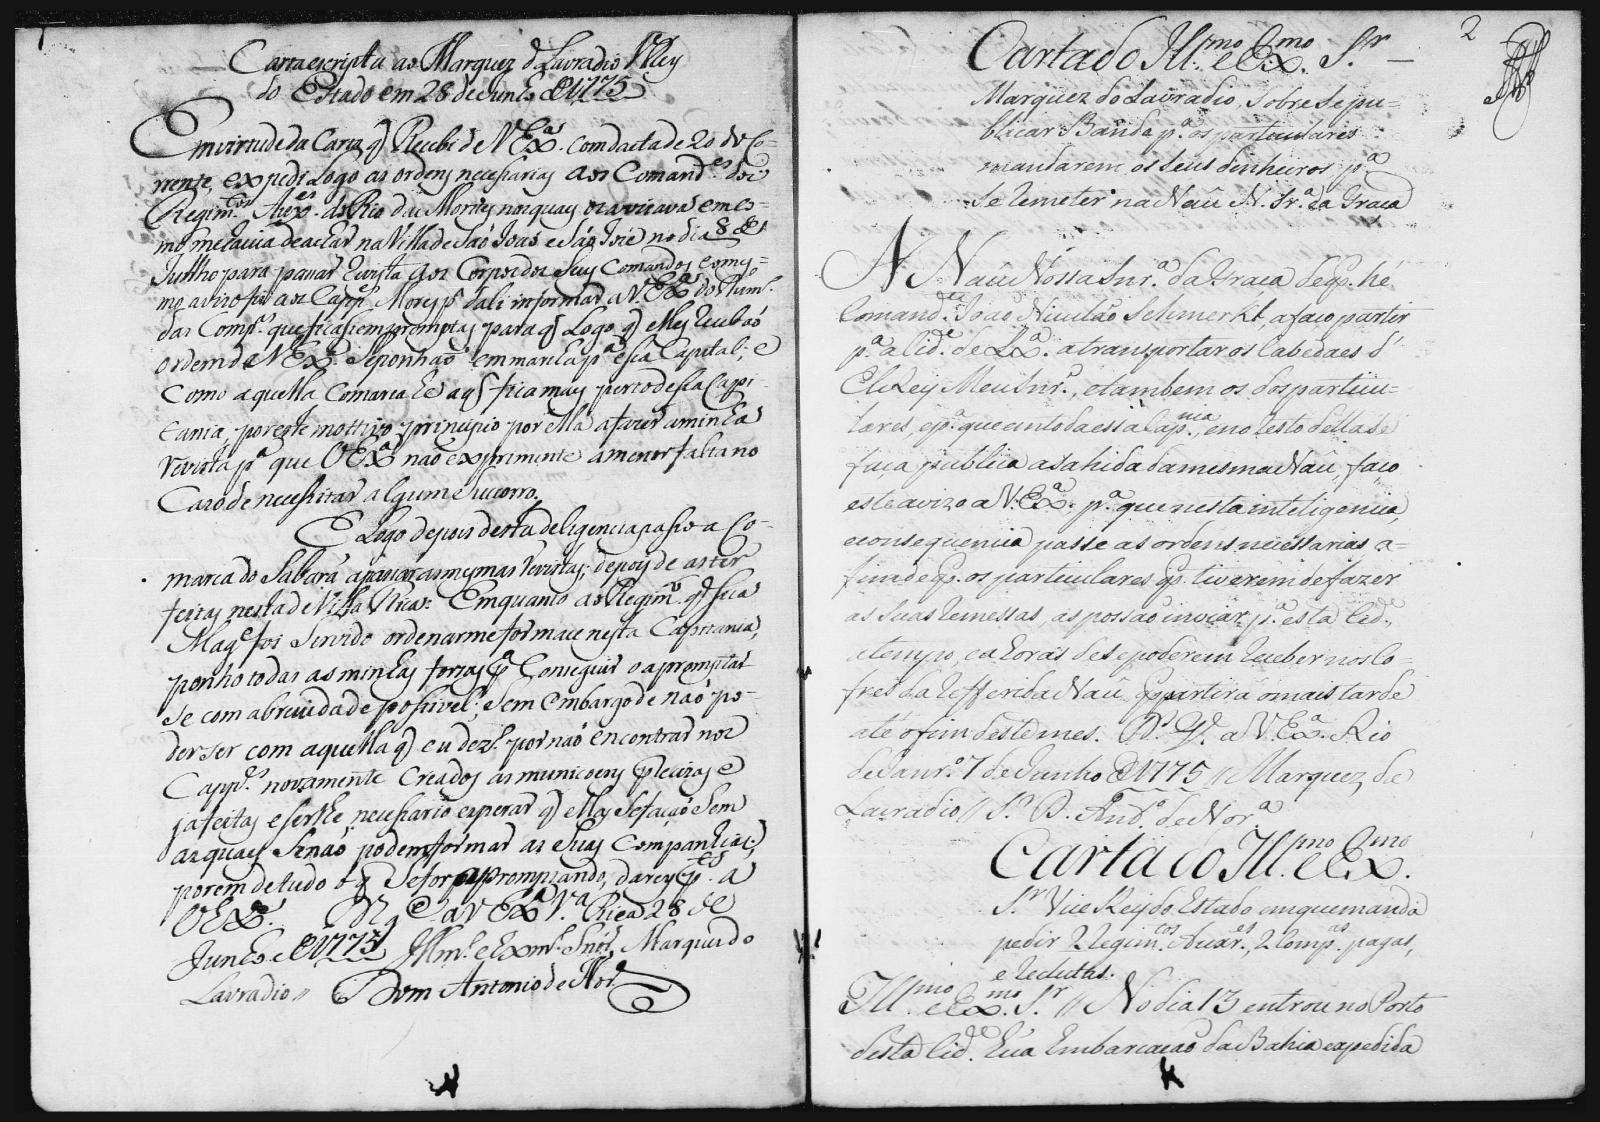 1
Carta escripta ao Marquez do Lavradio VRey
do Estado em 28 de Junho de 1775
Em virtude da Carta q̃ Recebi de V Exª. com dacta de 20 do Co=
rrente, expedi Logo as ordens necessarias aos Comand.es dos
Regim.tos Aux.es do Rio das Mortes nos quaes os avizava em co=
mo me havia de achar na Villa de Saó Joaó e Saó Joze no dia 8 de
Julho para passar revista aos Corpos dos seus Comandos e o mes=
mo avizo fis aos Capp.es Mores p.ª dali informar a V. Exª do Num.º
das Comp.as que ficassem promptas para q̃ Logo q̃ elles recebaó
ordem de V Exª. se ponhaó em marcha p.ª essa Capital; e
como aquella Comarca he a q̃ fica mais perto dessa Capi-
tania, por este mottivo principio por ella a fazer a minha
revista p.ª que V Exª não exprimente a menor falta no
Cazo de necessitar algum socorro.
E Logo depois desta deligencia passo a Co-
marca do Sabará a passar as mesmas revistas; depois de as ter
feitas nesta de Villa Rica: Emquanto ao Regim.to q̃ Sua
Mag.e foi Servido ordenarme formace nesta Capitania,
ponho todas as minhas forças p.ª Conseguir o apromptar
se com a brevidade possivel; Sem embargo de naó po-
der ser com aquella q̃ eu dez.º por naó encontrar nos
Capp.es novamente Creados as municoens precizas e
ja feitas e ser lhe necessario esperar q̃ ellas se façaó Sem
as quaes Se naó podem formar as Suas Companhias;
porem de tudo o q̃ Se for apromptando, darey p.te a
V Exª. D. G.e a V Exª V.ª Rica 28 de
Junho de 1775 Illm.º e Exm.º Snõr Marquez do
Lavradio // Dom Antonio de Nor.ª
2
Carta do Ill.mo e Ex.mo S.r
Marquez do Lavradio, sobre se pu=
blicar Bando p.ª os particulares
mandarem os seus dinheiros p.ª
se remeter na Naû N. Sr.ª da Graça
A Naû Nossa Snr.ª da Graça de q̃ hé
Comand.te Joaó Nicoláo Schmerkt, a faço partir
p.ª a Cid.e de Lx.ª a transportar os Cabedaes d'
ElRey Meu Snr., e tambem os dos particu-
lares, e p.ª que em toda essa Cap.nia, e no resto della se
faça publica a sahida da mesma Naû, faço
este avizo a V. Exª. p.ª que nesta inteligencia,
e consequencia passe as ordens necessarias, a=
fim de q̃ os particulares q̃ tiverem de fazer
as suas remessas, as possaó inviar p.ª esta Cid.e,
a tempo, e a horas de se poderem receber nos Co=
fres da refferida Naû, q̃ partirá o mais tarde
até o fim deste mes. D.s G.e a V. Exª. Rio
de Janr.º 7 de Junho de 1775 // Marquez de
Lavradio // S.r D. Ant.º de Nor.ª
Carta do Ill.mo e Ex.mo
S.r Vice Rey do Estado em que manda
pedir 2 Regim.tos Auxar.es, 2 Comp.as pagas,
e reclutas.
Ill.mo e Ex.mo S.r // No dia 13 entrou no Porto
desta Cid.e hua Embarcação da Bahia expedida